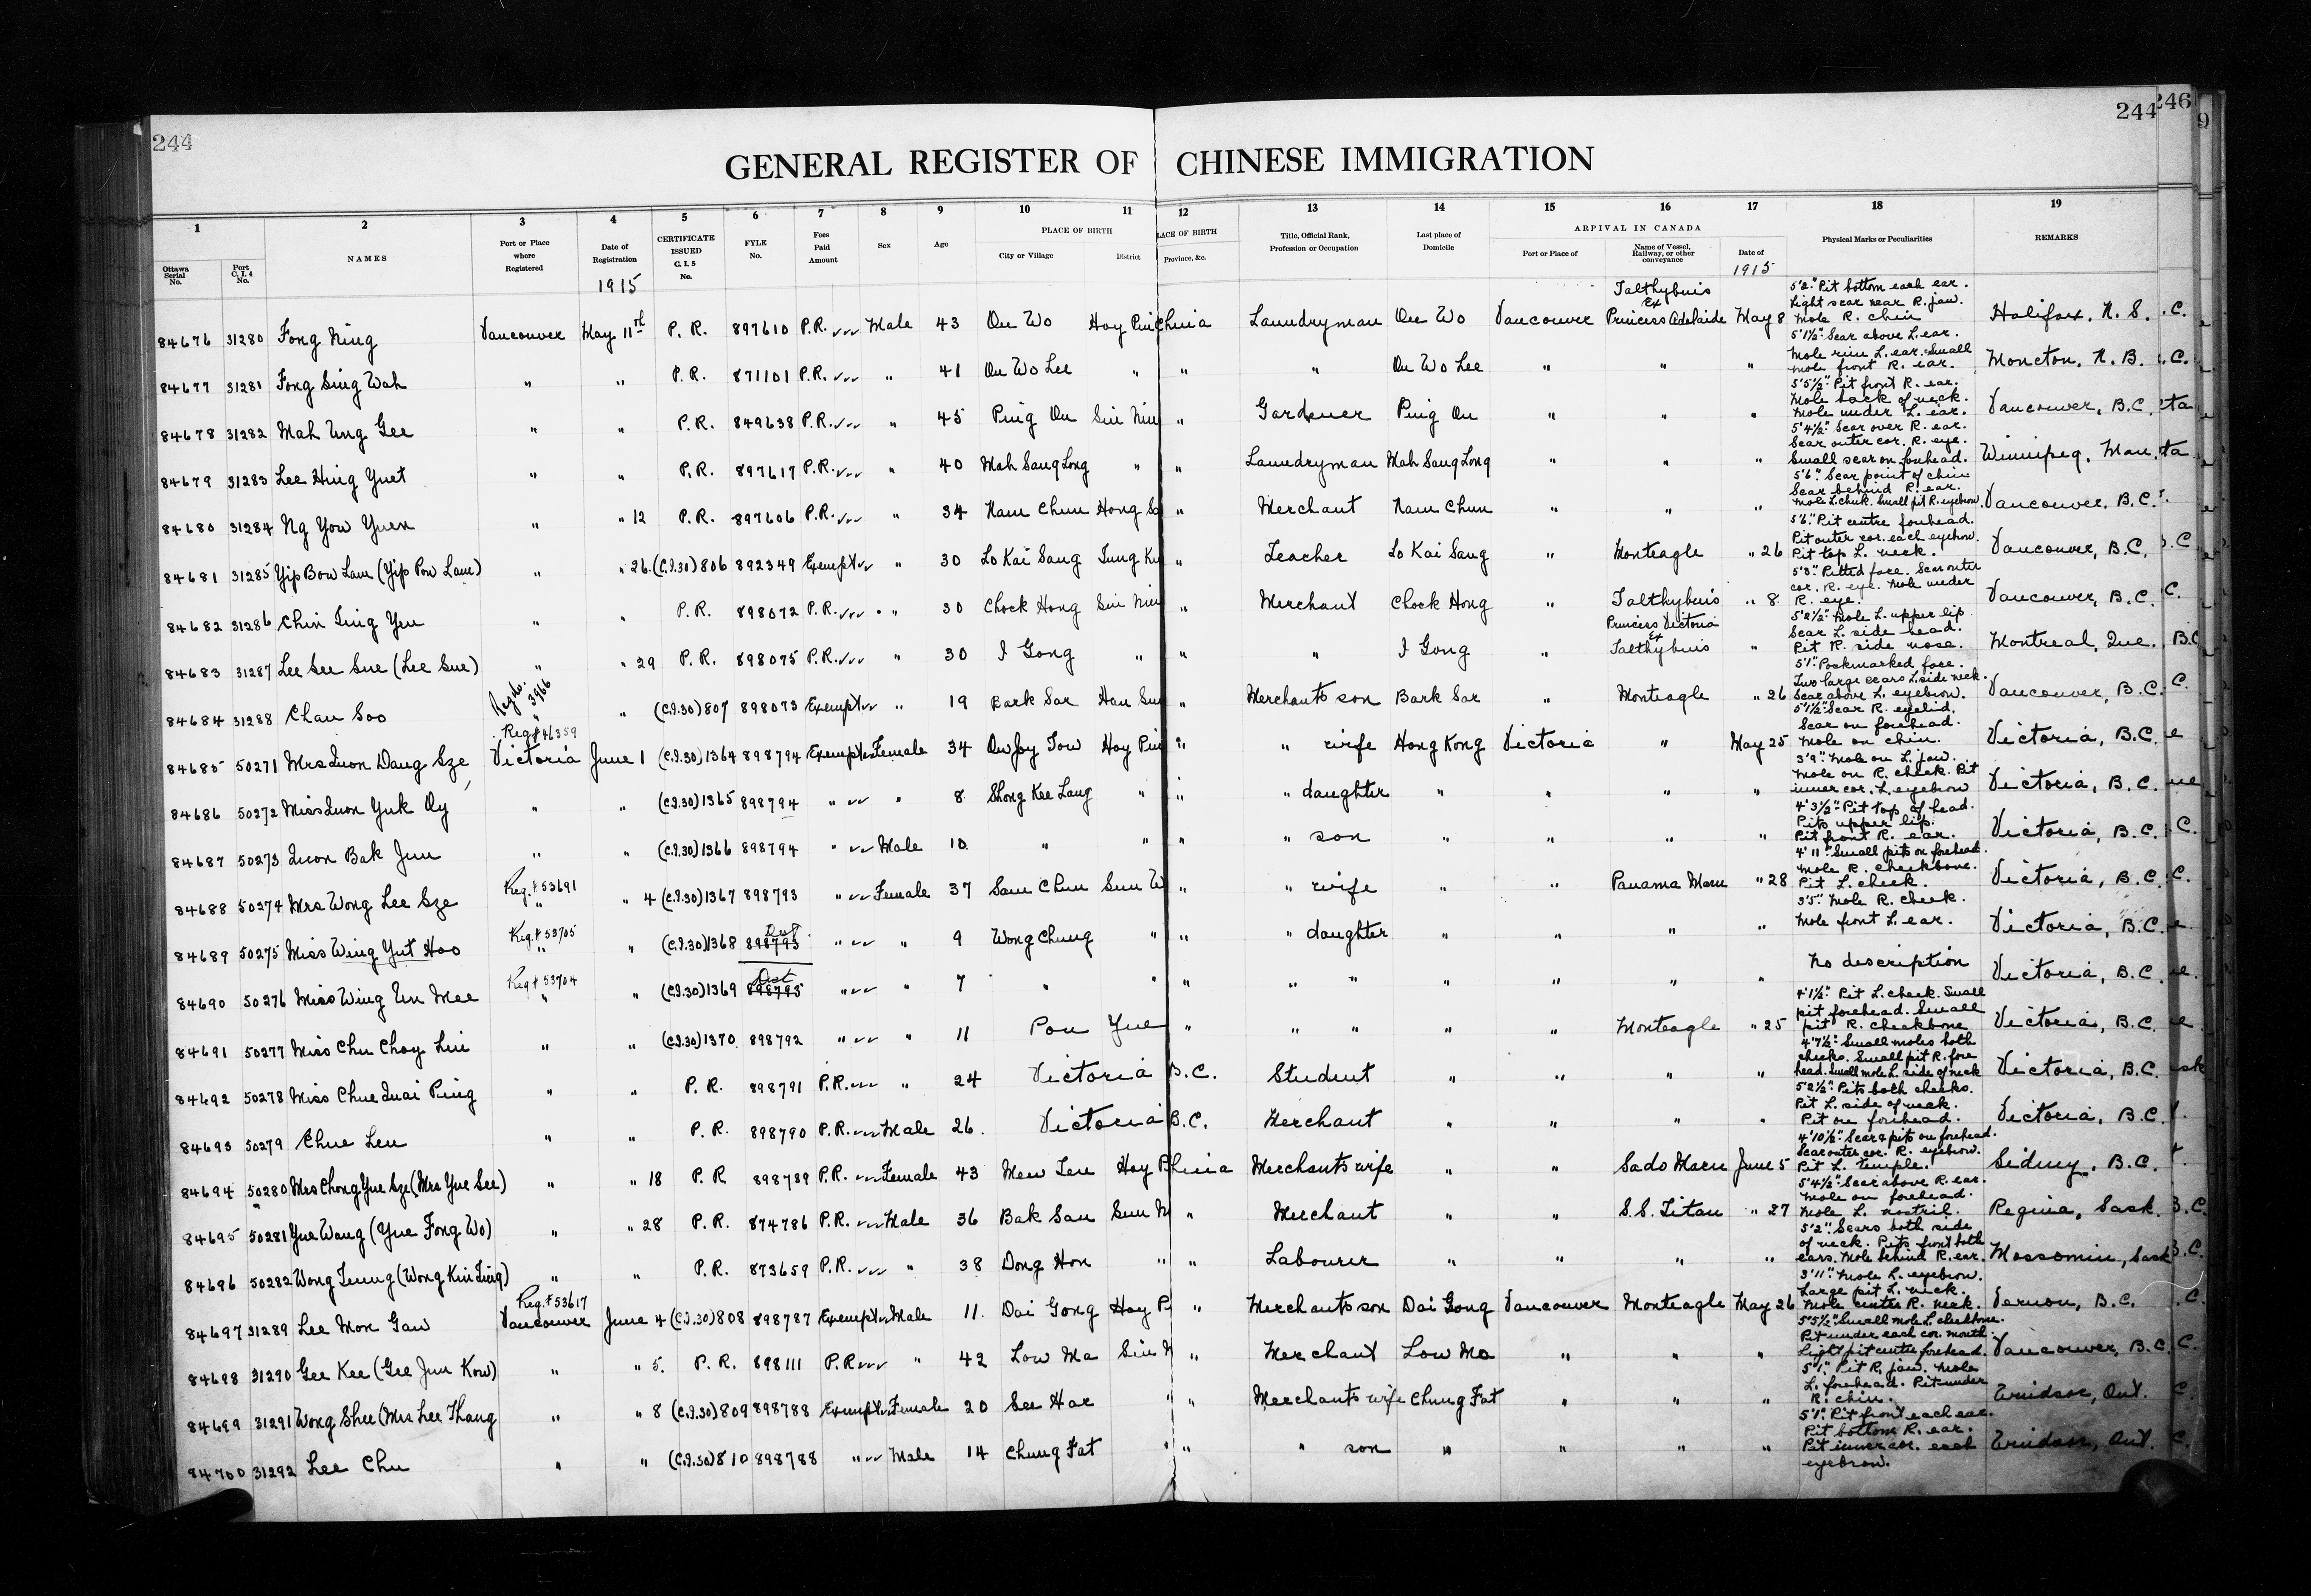 244
244
246
9
GENERAL REGISTER OF CHINESE IMMIGRATION
1 2 3 4 5 6 7 8 9 10 11 12 13 14 15 16 17 18 19
Ottawa Serial No. Port C. I. 4 No. NAMES Port or Place where Registered Date of Registration CERTIFICATE ISSUED C. I. 5 No. FYLE No. Fees Paid Amount Sex Age PLACE OF BIRTH City or Village District PLACE OF BIRTH Province, &c. Title, Official Rank, Profession or Occupation Last place of Domicile ARRIVAL IN CANADA Port or Place of Name of Vessel, Railway, or other conveyance Date of Physical Marks or Peculiarities REMARKS
1915 1915
84676 31280 Fong Ning Vancouver May 11th P. R. 897610 P.R. Male 43 On Wo Hoy Pin China Laundryman On Wo Vancouver Talthybius Ex Princess Adelaide May 8 5'2" Pit bottom each ear. Light scar near R. jaw. Mole R. chin Halifax, N. S.
84677 31281 Fong Sing Wah " " P.R. 871101 P.R. " 41 On Wo Lee " " " On Wo Lee " " " 5'1½" Scar above L. ear. Mole rim L. ear. Small mole front R. ear. Moncton, N. B.
84678 31282 Mah Ung Gee " " P.R. 849638 P.R. " 45 Ping On Sin Nin " Gardener Ping On " " " 5'5½" Pit front R. ear. Mole back of neck. Mole under L. ear. Vancouver, B.C.
84679 31283 Lee Hing Yuet " " P.R. 897617 P.R. " 40 Mah Sang Long " " Laundryman Mah Sang Long " " " 5'4½" Scar over R. ear. Scar outer cor. R. eye. Small scar on forehead. Winnipeg, Man.
84680 31284 Ng Yow Yuen " " 12 P.R. 897606 P.R. " 34 Nam Chun Hong " Merchant Nam Chun " " " 5'6" Scar point of chin Scar behind R. ear. Mole L. cheek. Small pit R. eyebrow. Vancouver, B.C.
84681 31285 Yip Bow Lam (Yip Pow Lam) " " 26 (C.I.30) 806 892349 Exempt " 30 Lo Kai Sang Tung " Teacher Lo Kai Sang " Monteagle " 26 5'6" Pit centre forehead. Pit outer cor. each eyebrow. Pit top L. neck. Vancouver, B.C.
84682 31286 Chin Ting Yen " " P.R. 898072 P.R. " 30 Chock Hong Sin Nin " Merchant Chock Hong " Talthybius " 8 5'3" Pitted face. Scar outer cor. R. eye. Mole under R. eye. Vancouver, B.C.
84683 31287 Lee See Sue (Lee Sue) " " 29 P.R. 898075 P.R. " 30 I Gong " " " I Gong " Princess Victoria Ex Talthybius " 5'2½" Mole L. upper lip Scar L. side head. Pit R. side nose. Montreal, Que.
84684 31288 Chan Soo Reg. No. 3966 " " (C.I.30) 807 898073 Exempt " 19 Bark Sar Han " Merchants son Bark Sar " Monteagle " 26 5'1" Pockmarked face. Two large scars L. side neck. Scar above L. eyebrow. Vancouver, B.C.
84685 50271 Mrs Quon Dang Sze Reg # 46359 Victoria June 1 (C.I.30) 1364 898794 Exempt Female 34 On Joy Tow Hoy Pin " " wife Hong Kong Victoria " May 25 5'1½" Scar R. eyelid. Scar on forehead. Mole on chin. Victoria, B.C.
84686 50272 Miss Quon Yuk Oy " " (C.I.30) 1365 898794 " " 8 Shong Kee Lang " " " daughter " " " " 3'9" Mole on L. jaw. Mole on R. cheek. Pit inner cor. L. eyebrow Victoria, B.C.
84687 50273 Quon Bak Jun " " (C.I.30) 1366 898794 " Male 10 " " " " son " " " " 4'3½" Pit top of head. Pits upper lip. Pit front R. ear. Victoria, B.C.
84688 50274 Mrs Wong Lee Sze Reg. # 53691 " " 4 (C.I.30) 1367 898793 " Female 37 Sam Chun Sun " " wife " " Panama Maru " 28 4'11" Small pits on forehead. Mole R. cheekbone. Pit L. cheek. Victoria, B.C.
84689 50275 Miss Wing Yut Hoo Reg. # 53705 " " (C.I.30) 1368 898795 " " 9 Wong Chung " " " daughter " " " " 3'5" Mole R. cheek. Mole front L. ear. Victoria, B.C.
84690 50276 Miss Wing Un Mee Reg # 53704 " " (C.I.30) 1369 898795 " " 7 " " " " " " " " " No description Victoria, B.C.
84691 50277 Miss Chu Choy Lin " " (C.I.30) 1370 898792 " " 11 Pon Yue " " " " " Monteagle " 25 4'1½" Pit L. cheek. Small pit forehead. Small pit R. cheekbone Victoria, B.C.
84692 50278 Miss Chue Quai Ping " " P.R. 898791 P.R. " 24 Victoria B.C. Student " " " " 4'7½" Small moles both cheeks. Small pit R. forehead. Small mole L. side of neck Victoria, B.C.
84693 50279 Chue Len " " P.R. 898790 P.R. Male 26. Victoria B.C. Merchant " " " " 5'2½" Pits both cheeks. Pit L. side of neck. Pit on forehead. Victoria, B.C.
84694 50280 Mrs Chong Yue Sze (Mrs Yue See) " " 18 P.R. 898789 P.R. Female 43 Mew Ten Hoy China Merchants wife " " Sado Maru June 5 4'10½" Scar & pits on forehead. Scar outer cor. R. eyebrow. Pit L. temple. Sidney, B.C.
84695 50281 Yue Wang (Yue Fong Wo) " " 28 P.R. 874786 P.R. Male 36 Bak San Sun " Merchant " " S.S. Titan " 27 5'4½" Scar above R. ear. Mole on forehead. Mole L. nostril. Regina, Sask.
84696 50282 Wong Teung (Wong Kin Ting) " " P.R. 873659 P.R. " 38 Dong Hon " " Labourer " " " " 5'2" Scars both side of neck. Pits front both ears. Mole behind R. ear. Moosomin, Sask
84697 31289 Lee Mon Gaw Reg. # 53617 Vancouver June 4 (C.I.30) 808 898787 Exempt Male 11. Dai Gong Hoy " Merchants son Dai Gong Vancouver Monteagle May 26 3'11" Mole L. eyebrow. Large pit L. neck. Mole center R. neck. Vernon, B.C.
84698 31290 Gee Kee (Gee Jun Kow) " " 5. P.R. 898111 P.R. " 42 Low Ma Sin " Merchant Low Ma " " " 5'5½" Small mole L. cheekbone. Pit under each cor. mouth. Light pit centre forehead. Vancouver, B.C.
84699 31291 Wong Shee (Mrs Lee Thang " " 8 (C.I.30) 809 898788 Exempt Female 20 See Har " " Merchants wife Chung Fat " " " 5'1" Pit R. jaw. Mole L. forehead. Pit under R. chin. Windsor, Ont.
84700 31292 Lee Chu " " (C.I.30) 810 898788 " Male 14 Chung Fat " " " son " " " " 5'1" Pit front each ear. Pit bottom R. ear. Pit inner cor. each eyebrow. Windsor, Ont.